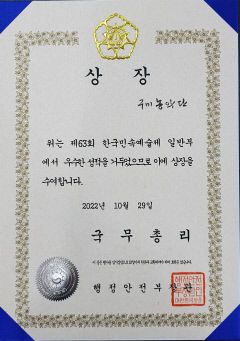 상장
구미농악단
위는 제63회 한국민속예술제 일반부
에서 우수한 성적을 거두었으므로 이에 상장을
수여합니다.
2022년 10월 29일
국무총리
행정안전부장관